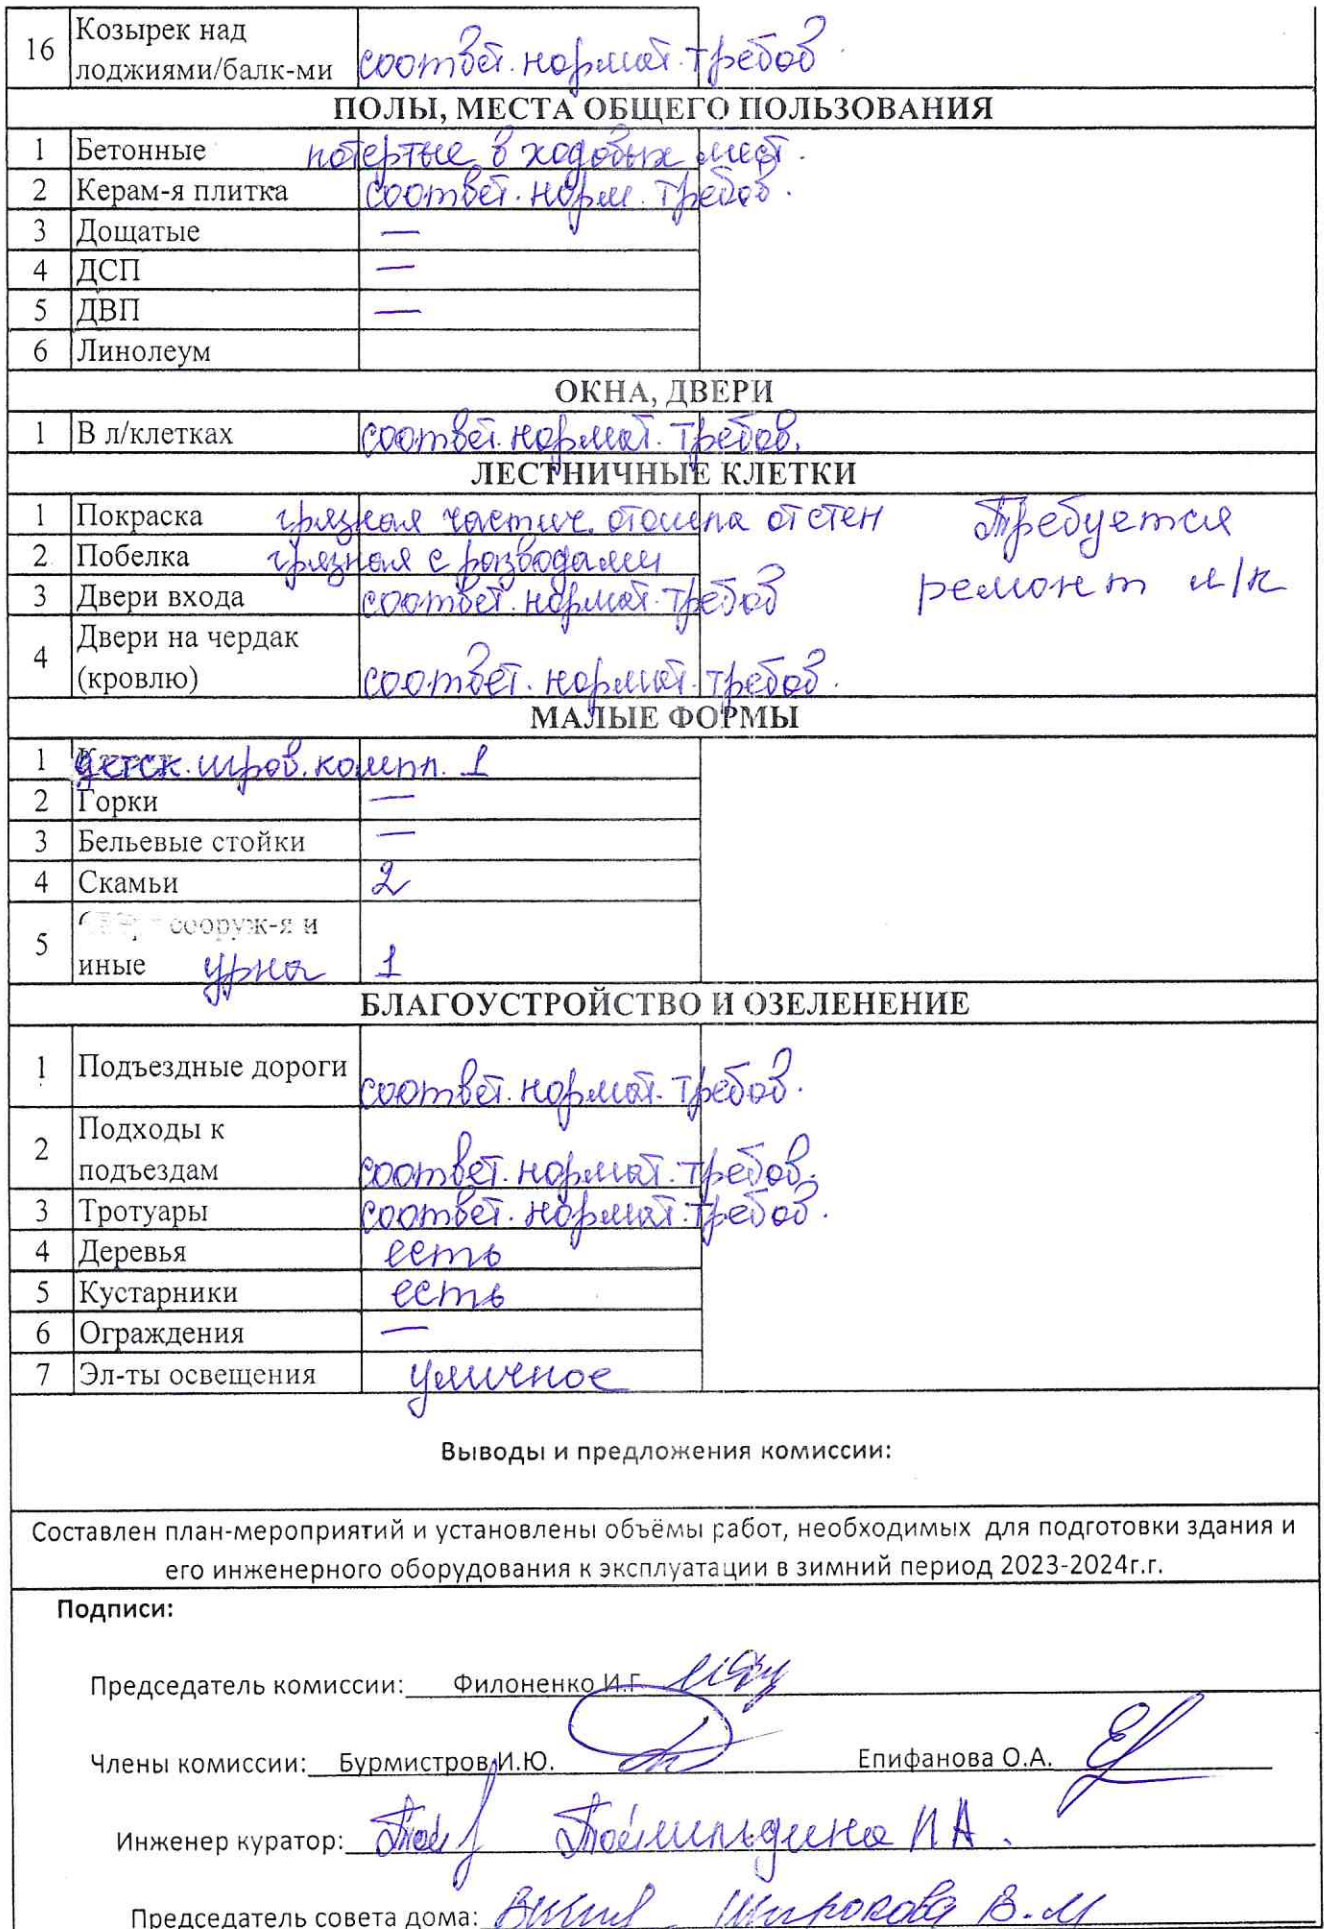 16 Козырек над
лоджиями/балк-ми соответ. нормат. требов
ПОЛЫ, МЕСТА ОБЩЕГО ПОЛЬЗОВАНИЯ
1 Бетонные потертые в ходовых мест.
2 Керам-я плитка соответ. норм. требов.
3 Дощатые —
4 ДСП —
5 ДВП —
6 Линолеум
ОКНА, ДВЕРИ
1 В л/клетках соответ. нормат. требов.
ЛЕСТНИЧНЫЕ КЛЕТКИ
1 Покраска грязная частич. отошла от стен Требуется
2 Побелка грязная с разводами
3 Двери входа соответ. нормат. требов ремонт л/к
Двери на чердак
4
(кровлю) соответ. нормат. требов.
МАЛЫЕ ФОРМЫ
1 детск. игров. компл. 1
2 Горки —
3 Бельевые стойки —
4 Скамьи 2
сооруж-я и
5
иные урна 1
БЛАГОУСТРОЙСТВО И ОЗЕЛЕНЕНИЕ
1 Подъездные дороги соответ. нормат. требов.
Подходы к
2
подъездам соответ. нормат. требов.
3 Тротуары соответ. нормат. требов.
4 Деревья есть
5 Кустарники есть
6 Ограждения —
7 Эл-ты освещения уличное
Выводы и предложения комиссии:
Составлен план-мероприятий и установлены объёмы работ, необходимых для подготовки здания и
его инженерного оборудования к эксплуатации в зимний период 2023-2024г.г.
Подписи:
Председатель комиссии: Филоненко И.Г
Члены комиссии: Бурмистров И.Ю. Епифанова О.А.
Инженер куратор:
Председатель совета дома: Широкова В.М